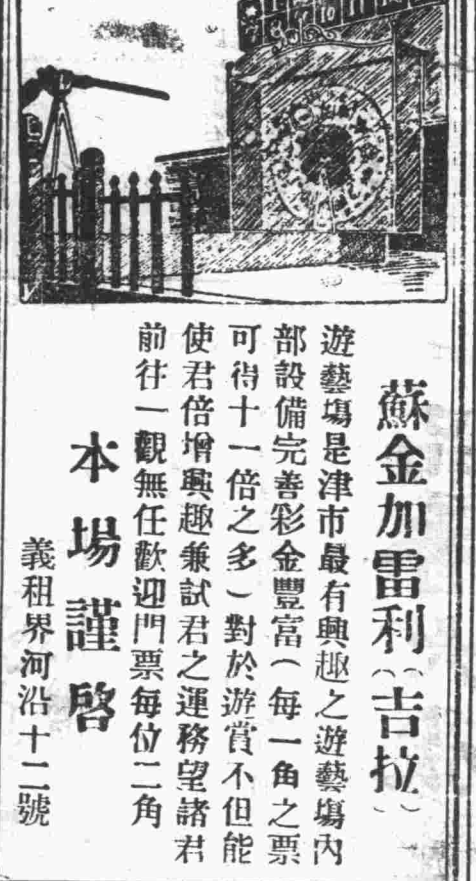 蘇金加雷利（吉拉）
遊藝塲是津市最有興趣之遊藝塲內
部設備完善彩金豐富（每一角之票
可得十一倍之多）對於游賞不但能
使君倍增興趣兼試君之運務望諸君
前往一觀無任歡迎門票每位二角
本場謹啓
義租界河沿十二號